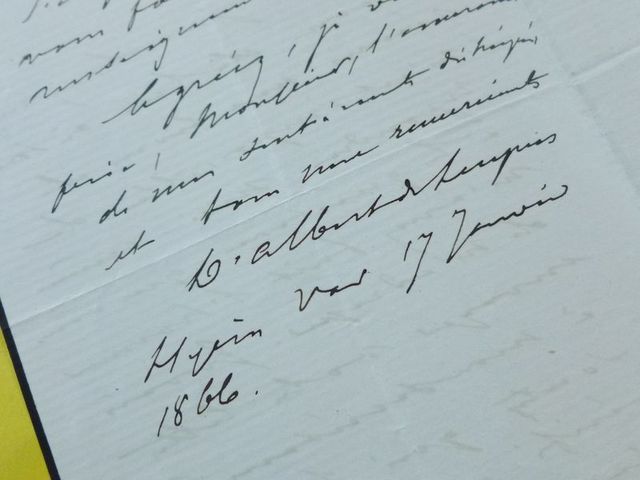 vous
renseignem
Agréez, je v
Monsieur, l'assuran
de mes sentiments distingués,
et tous mes remerciements
D. Albert de
Hyères Var 17 Janvier
1866.